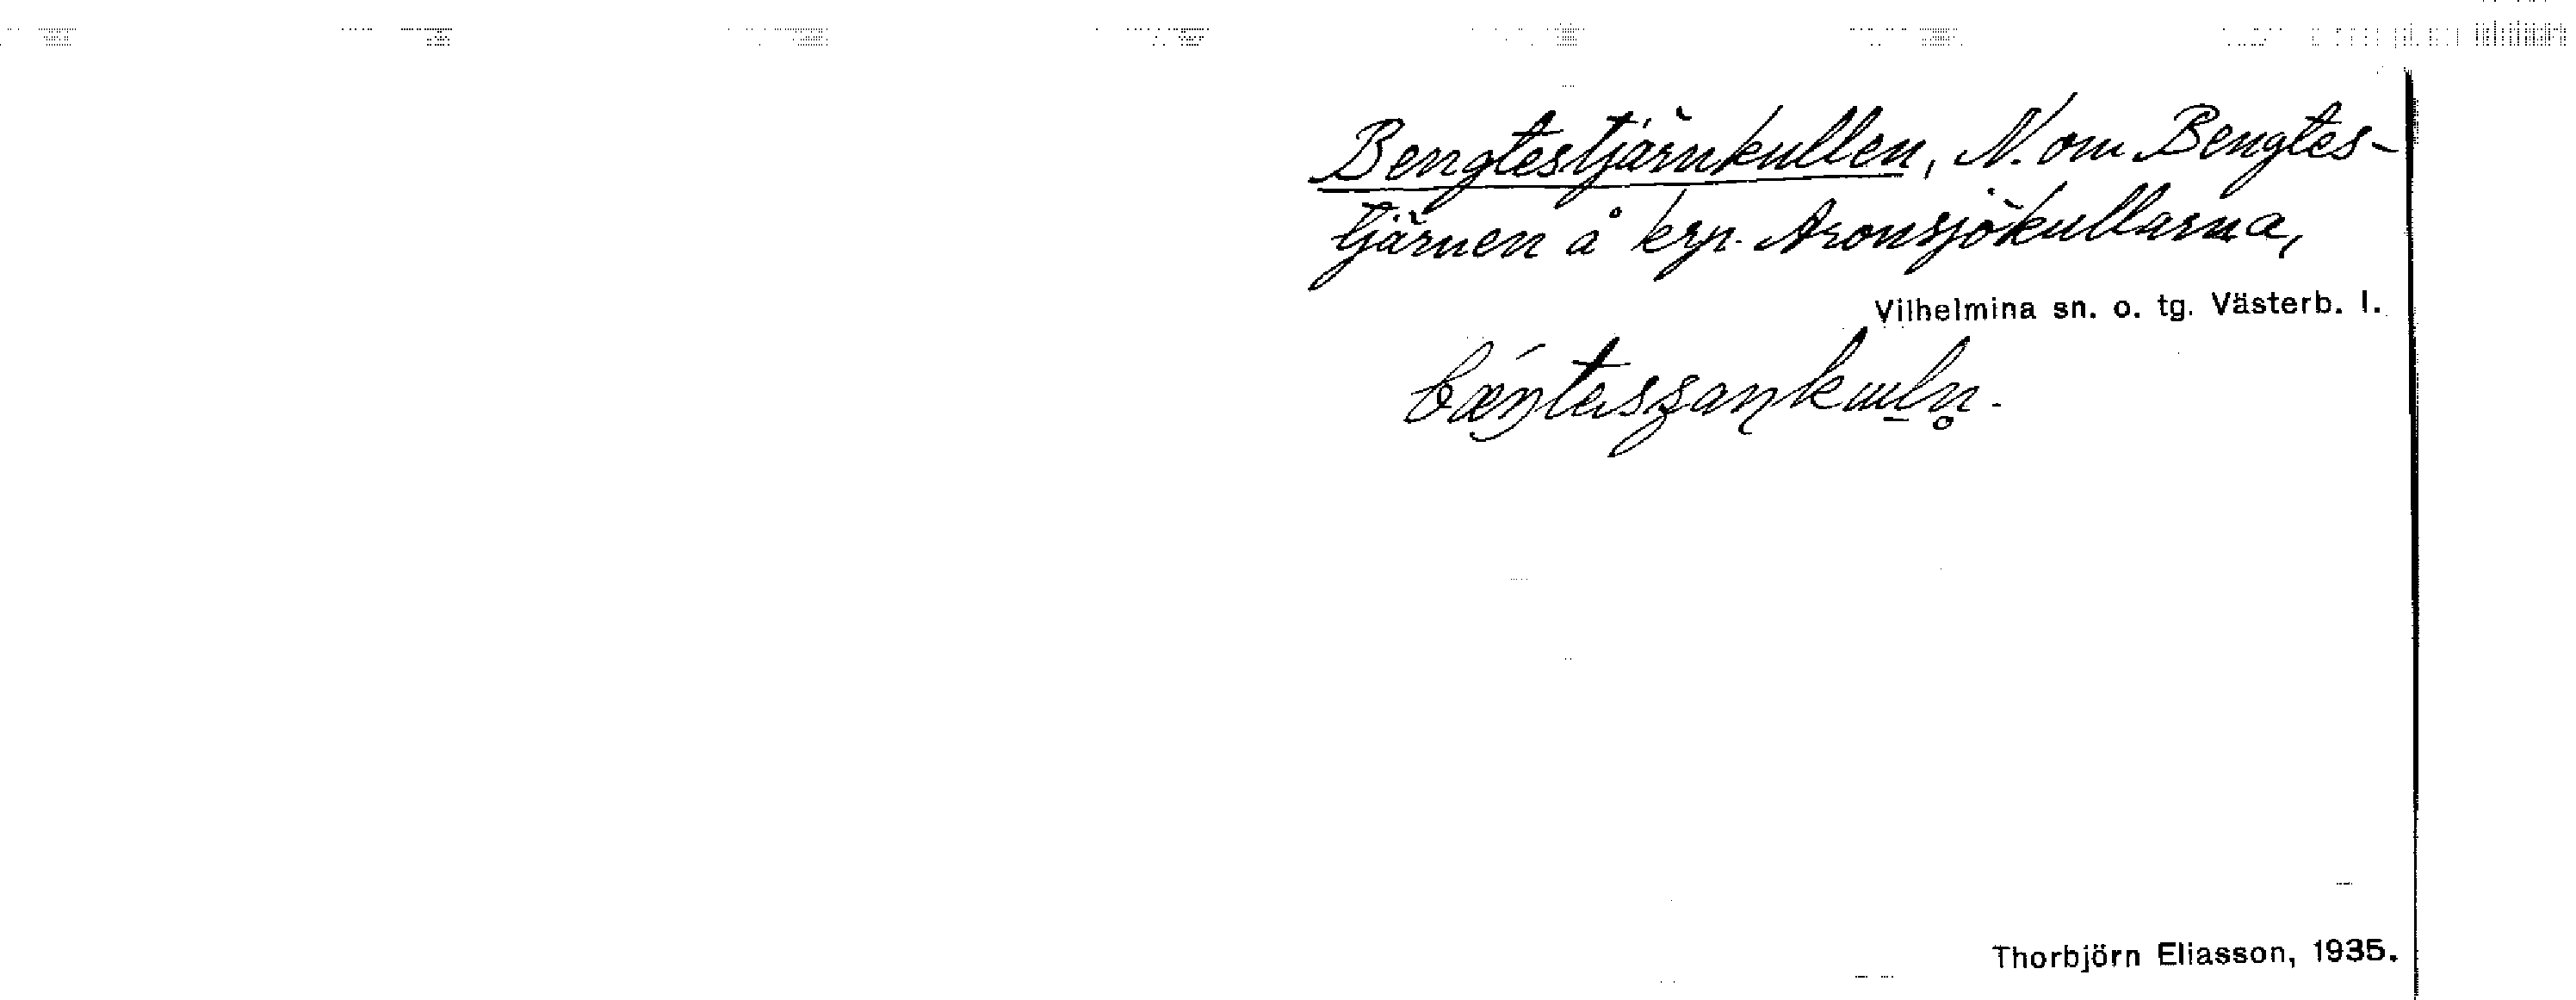 Bengtestjärnkullen, N. om Bengtes-
tjärnen å krp. Aronsjökullarna,
Vilhelmina sn. o. tg. Västerb. l.
Thorbjörn Eliasson, 1935.